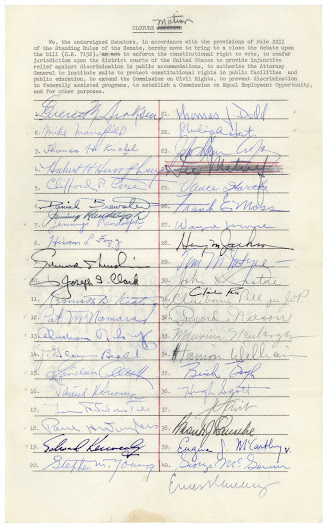 CLOTURE Motion
We, the undersigned Senators, in accordance with the provisions of rule XXII
of the Standing Rules of the Senate, hereby move to bring to a close the debate upon
the bill (H.R. 7152), an act to enforce the constitutional right to vote, to confer
jurisdiction upon the district courts of the United States to provide injunctive
relief against discrimination in public accommodations, to authorize the Attorney
General to institute suits to protect constitutional rights in public facilities and
public education, to extend the Commission on Civil Rights, to prevent discrimination
in federally assisted programs, to establish a Commission on Equal Employment Opportunity,
and for other purposes.
1. Everett M Dirksen
2. Mike Mansfield
3. Thomas H. Kuchel
4. Hubert H. Humphrey
5. Clifford P. Case
6. Daniel Brewster
7. Jennings Randolph
Jennings Randolph
8. Hiram L. Fong
9.
10. Joseph S. Clark
11. Kenneth B. Keating
12. Pat McNamara
13.
14. J. Glenn Beall
15.
16.
17.
18.
19. Edward Kennedy
20. Stephen M. Young
21. Thomas J. Dodd
22. Philip A. Hart
23.
24. Lee Metcalf
25. Vance Hartke
26. Frank E. Moss
27. Wayne Morse
28. Henry M. Jackson
29.
30.
31. Claiborne Pell
32. Gaylord Nelson
33. Maurine Neuberger
34. Harrison Williams
35. Birch Bayh
36. Hugh Scott
37.
38.
39. Eugene J. McCarthy
40. George McGovern
Ernest Gruening